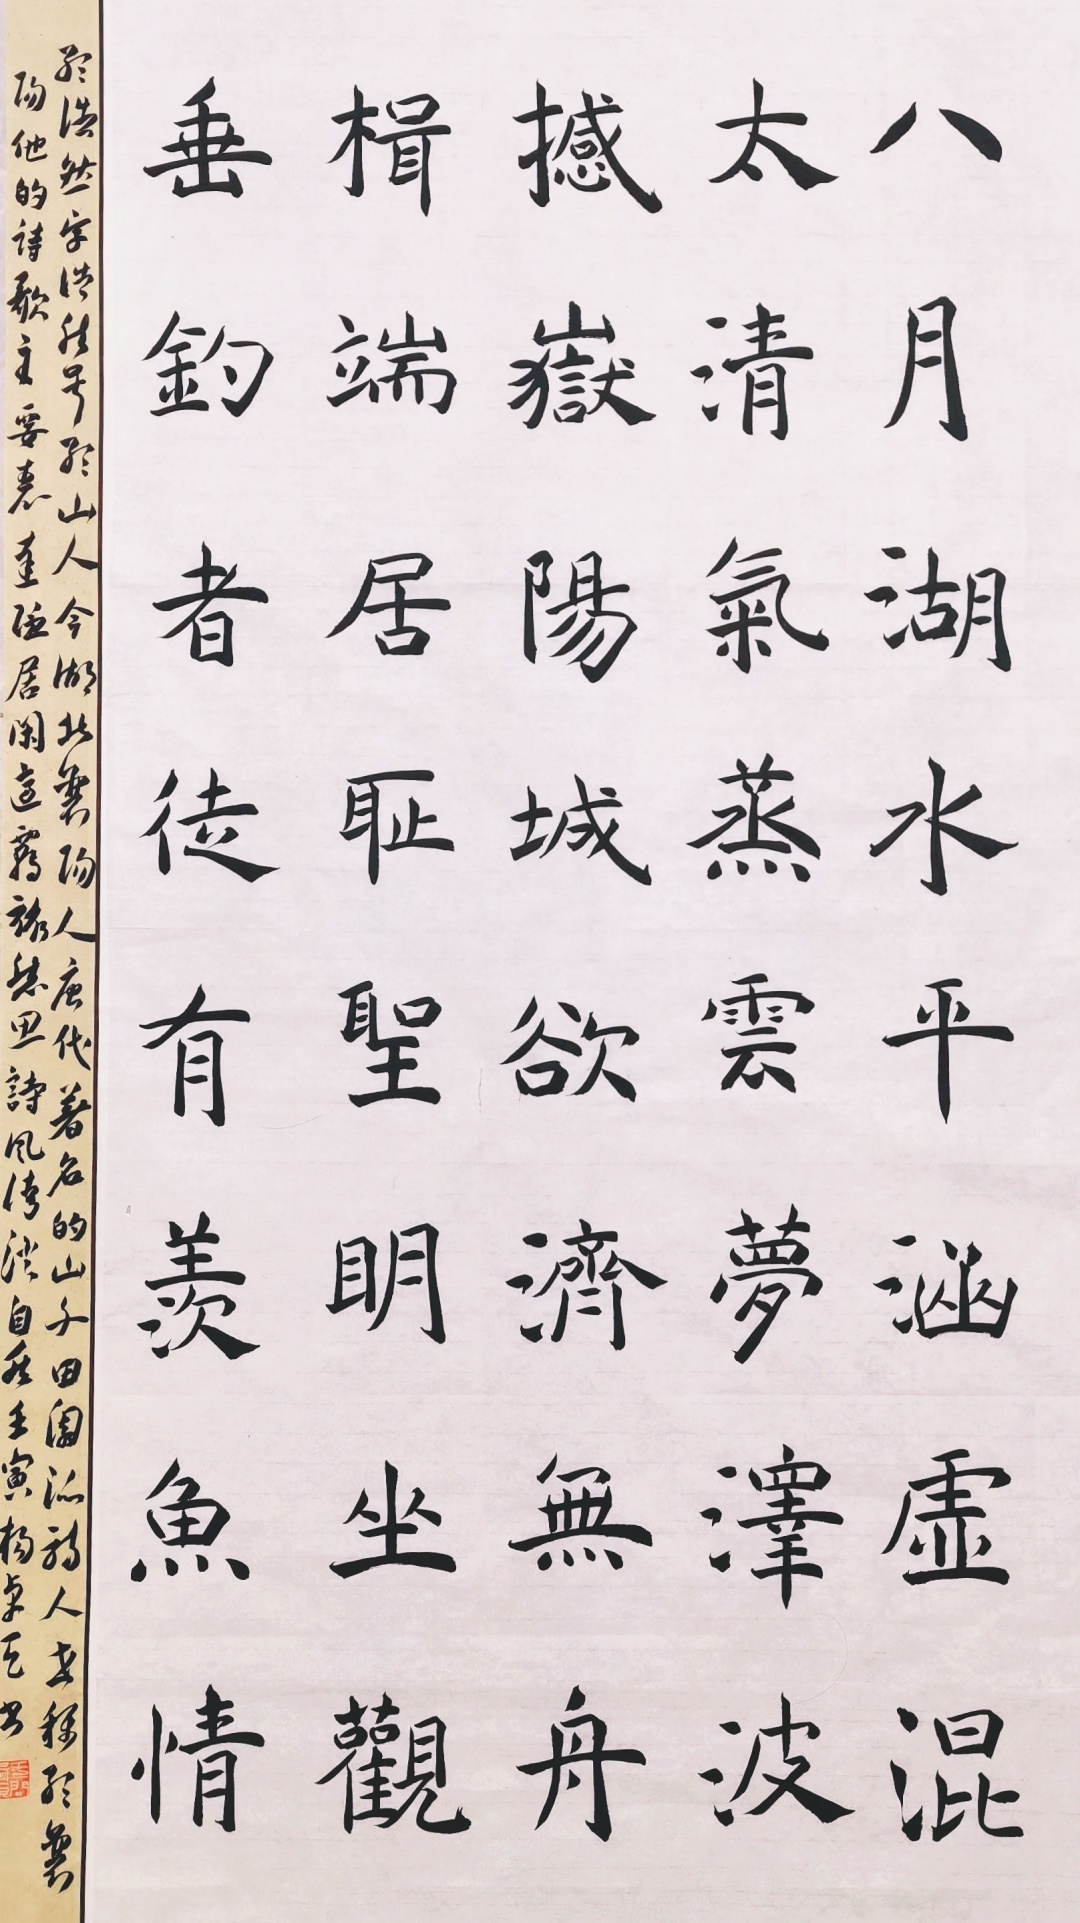 八月湖水平涵虛混
太清氣蒸雲夢澤波
撼嶽陽城欲濟無舟
楫端居耻聖明坐觀
垂釣者徒有羨魚情
孟浩然字浩然号孟山人今湖北襄陽人唐代著名的山水田園派詩人世稱孟襄
陽他的詩歌主要表達隱居閑適羈旅愁思詩風清淡自然壬寅楊卓書